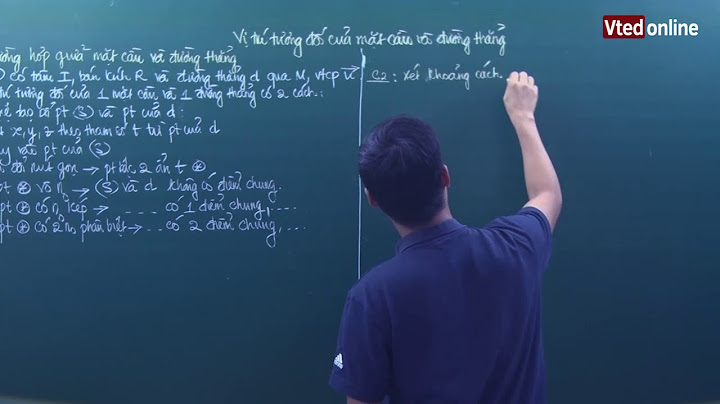 Vted online
Vị trí tương đối của mặt cầu và đường thẳng
hợp quả mặt cầu và đường thẳng
có tâm I, bán kính R và đường thẳng d qua M, vtcp u
trí tương đối của 1 mặt cầu và 1 đường thẳng có 2 cách:
tạo bởi pt (S) và pt của d:
x, y, z theo tham số t từ pt của d
vào pt của (S)
rút gọn → pt bậc 2 ẩn t ⊛
pt ⊛ vô n₀ → (S) và d không có điểm chung.
pt ⊛ có n₀ kép → ... có 1 điểm chung, ...
pt ⊛ có 2 n₀ phân biệt → ... có 2 điểm chung, ...
C2: Xét khoảng cách